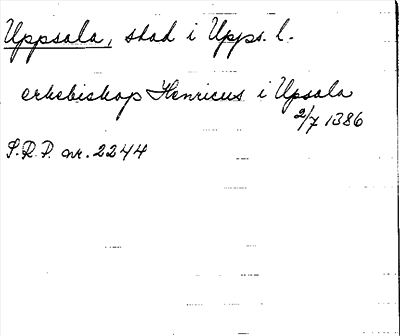 Uppsala, stad i Upps. l.
erkebiskop Henricus i Upsala
2/7 1386
S.R.P. nr. 2244